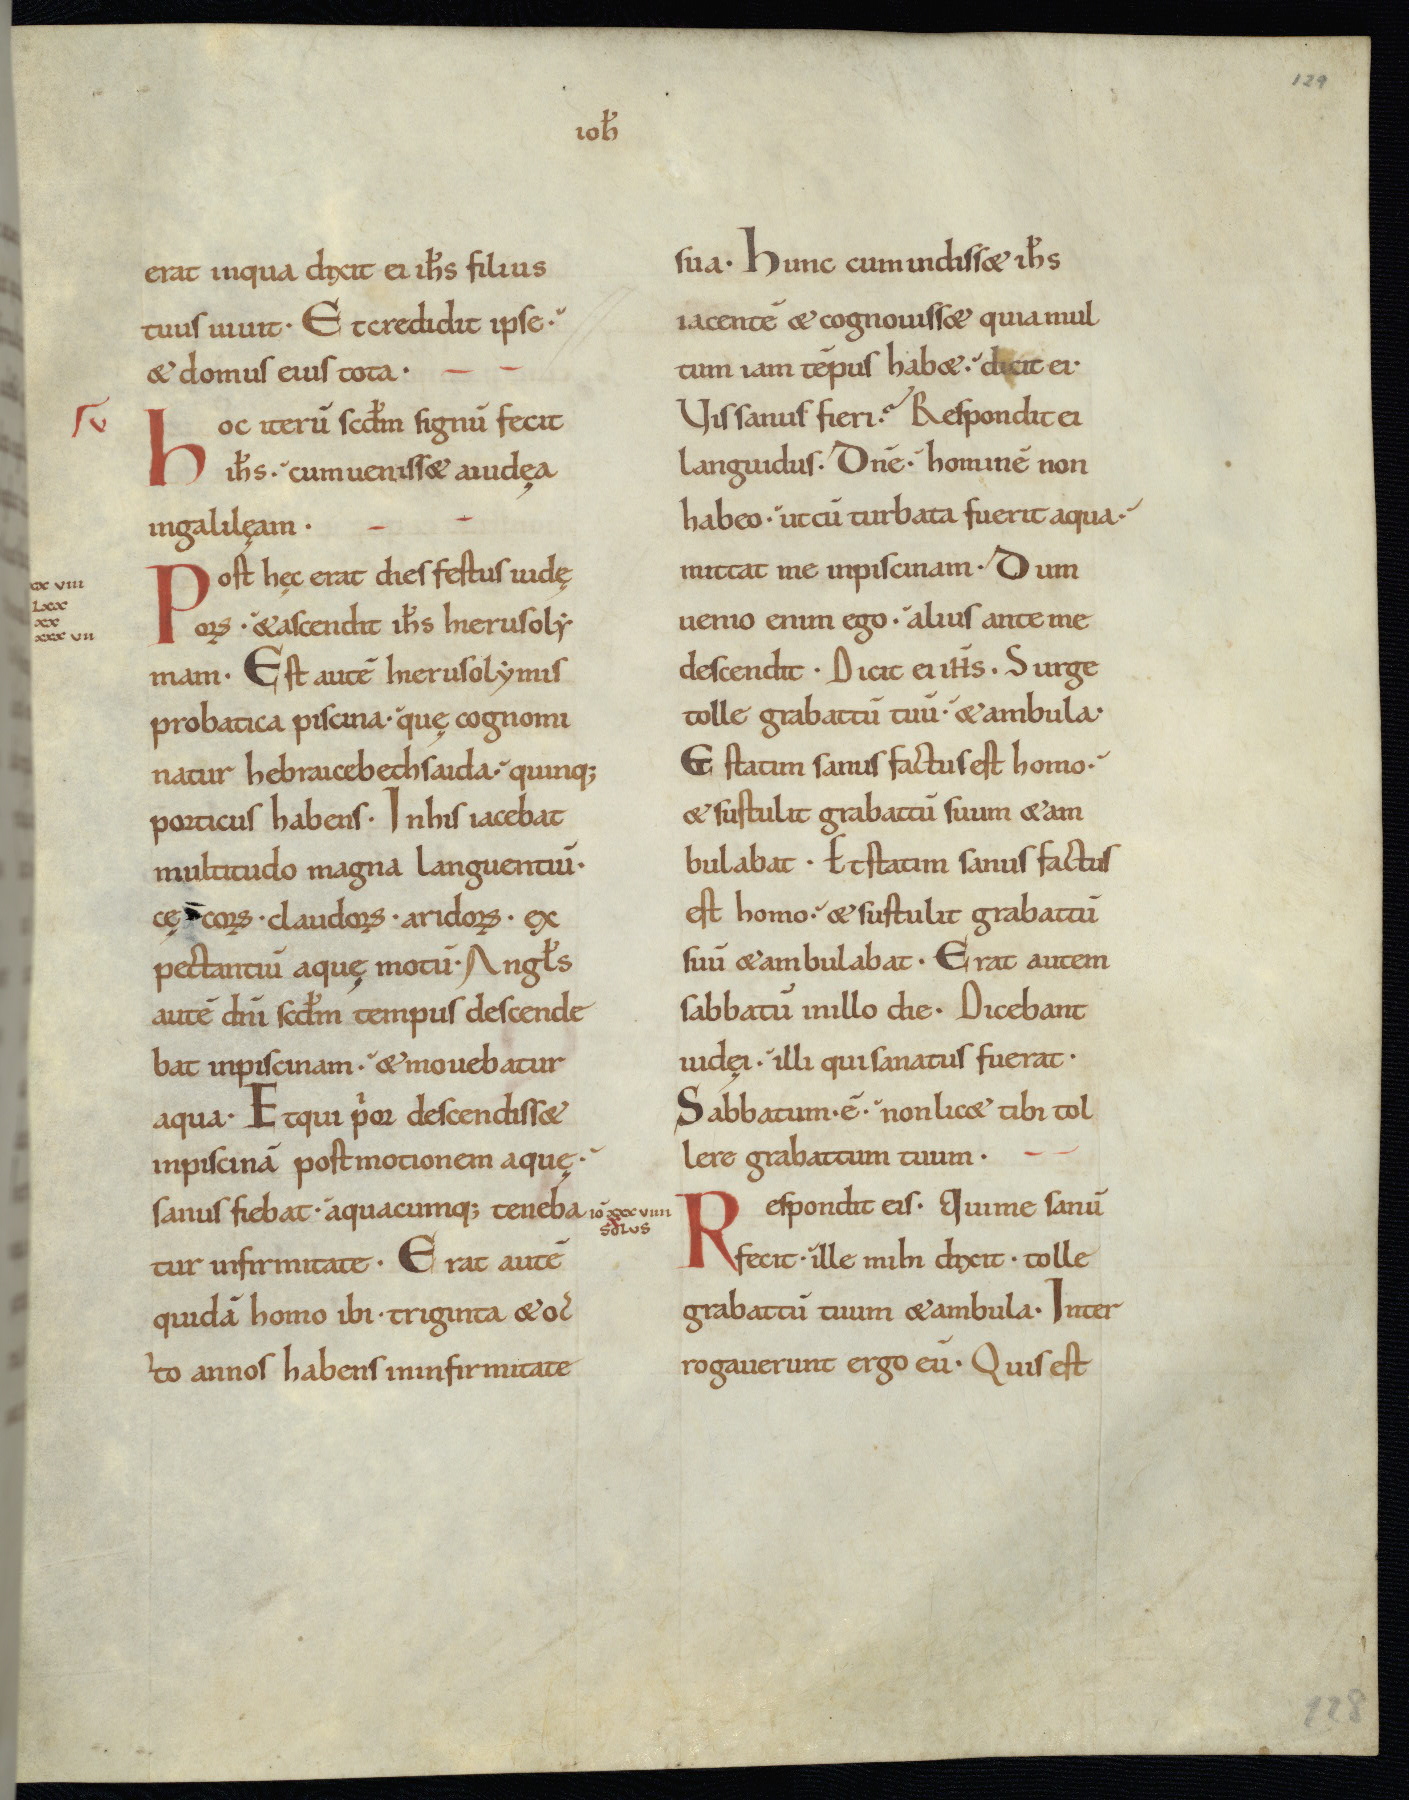 129
ioħ
erat inqua dixit ei iħs filius
tuus uiuit· Et credidit ipse·
& domus eius tota·
Hoc iterū scđm signū fecit
iħs· cum uenissæ aiudęa
ingalilęam·
Post hęc erat dies festus iudę
oꝝ· & ascendit iħs hierusolẏ
mam· Est autē hierusolẏmis
probatica piscina· quę cognomi
natur hebraice bethsaida· quinq;
porticus habens· In his iacebat
multitudo magna languentiū·
cę coꝝ· claudoꝝ· aridoꝝ· ex
pectantiū aquę motū· Angƚs
autē dnī scđm tempus descende
bat inpiscinam· & mouebatur
aqua· Et qui p̄or descendissæ
inpiscinā post motionem aquę·
sanus fiebat· aquacumq; teneba
tur infirmitate· Erat autē
quidā homo ibi· triginta & oc
to annos habens ininfirmitate
xx viii
Lxx
xx
xxx vii
sua· Hunc cum uidissæ iħs
iacentē & cognouissæ quia mul
tum iam tēpus habæ· dicit ei·
Vis sanus fieri· Respondit ei
languidus· Dnē· hominē non
habeo· ut cū turbata fuerit aqua·
mittat me inpiscinam· Dum
uenio enim ego· alius ante me
descendit· Dicit ei iħs· Surge
tolle grabattū tuū· & ambula·
Et statim sanus factus est homo·
& sustulit grabattū suum & am
bulabat· Et statim sanus factus
est homo· & sustulit grabattū
suū & ambulabat· Erat autem
sabbatū inillo die· Dicebant
iudęi· illi qui sanatus fuerat·
Sabbatum· ē· non licæ tibi tol
lere grabattum tuum·
iō xxxviiii
solus
Respondit eis· Qui me sanū
fecit· ille mihi dixit· tolle
grabattū tuum & ambula· Inter
rogauerunt ergo eū· Quis est
128